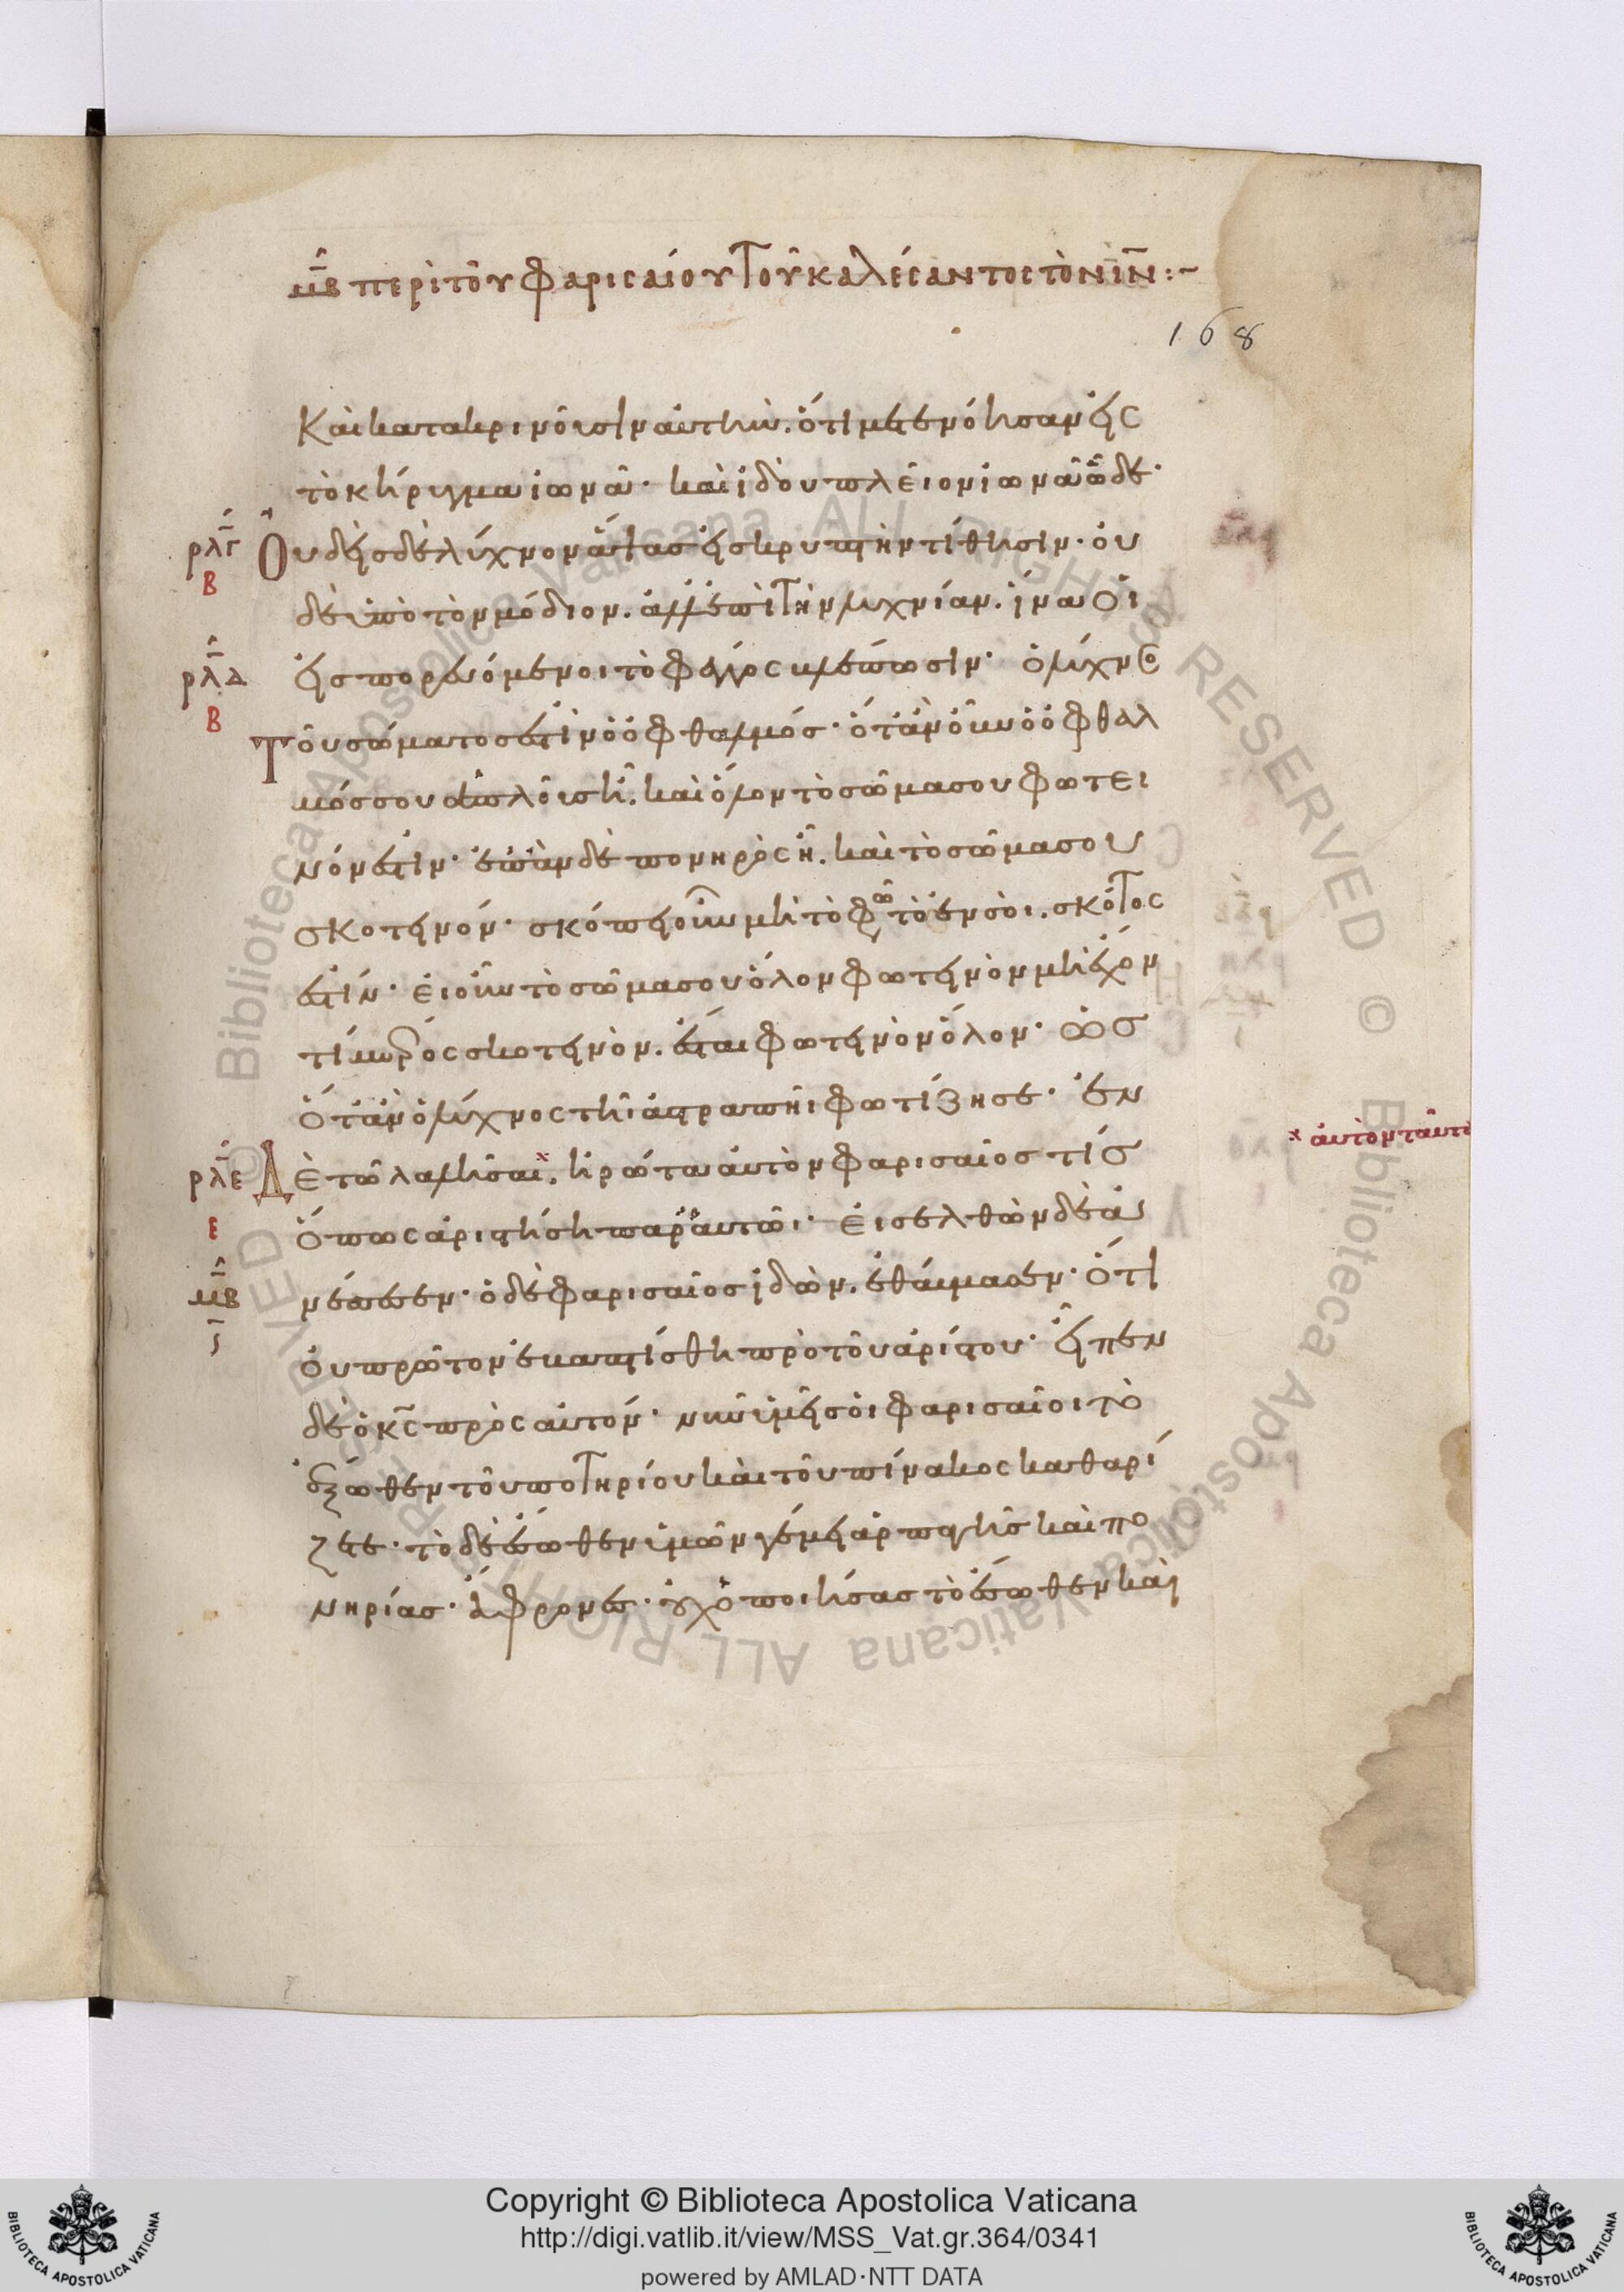 μβ περὶ τοῦ φαρισαίου τοῦ καλέσαντος τὸν ιν :-
168
Καὶ κατακρινοῦσιν αὐτήν. ὅτι μετενόησαν εἰς
τὸ κήρυγμα ἰωνᾶ· καὶ ἰδοὺ πλεῖον ἰωνᾶ ὧδε·
ρλγ Οὐδεὶς δὲ λύχνον ἅψας εἰς κρυπτὴν τίθησιν· οὐ
β
δὲ ὑπὸ τὸν μόδιον. ἀλλ ἐπὶ τὴν λυχνίαν. ἵνα οἱ
ρλδ εἰσπορευόμενοι τὸ φέγγος βλέπωσιν· ὁ λύχνος
β
Τοῦ σώματος ἐστὶν ὁ ὀφθαλμός· ὅταν οὖν ὁ ὀφθαλ
μός σου ἁπλοῦς ἦ. καὶ ὅλον τὸ σῶμα σου φωτει
νόν ἐστιν· ἐπὰν δὲ πονηρὸς ἦ. καὶ τὸ σῶμα σου
σκοτεινόν· σκόπει οὖν μὴ τὸ φῶς τὸ ἐν σοὶ. σκότος
ἐστίν· εἰ οὖν τὸ σῶμα σου ὅλον φωτεινὸν μὴ ἔχον
τί μέρος σκοτεινὸν. ἔσται φωτεινὸν ὅλον· ὡς
ὅταν ὁ λύχνος τῆι ἀστραπῆι φωτίζη σε· ἐν
ρλε Δὲ τῶ λαλῆσαι. ἠρώτα αὐτὸν φαρισαῖος τίς
× αὐτὸν ταῦτα
ε
ὅπως ἀριστήση παρ αὐτῶι· εἰσελθὼν δὲ ἀ
μβ νέπεσεν· ὁ δὲ φαρισαῖος ἰδὼν. ἐθαύμασεν· ὅτι
οὐ πρῶτον ἐβαπτίσθη πρὸ τοῦ ἀρίστου· εἶπεν
δὲ ὁ κς πρὸς αὐτόν· νῦν ὑμεῖς οἱ φαρισαῖοι τὸ
ἔξωθεν τοῦ ποτηρίου καὶ τοῦ πίνακος καθαρί
ζετε· τὸ δὲ ἔσωθεν ὑμῶν γέμει ἁρπαγῆς καὶ πο
νηρίας· ἄφρονες· οὐχ ὁ ποιήσας τὸ ἔσωθεν καὶ
Copyright © Biblioteca Apostolica Vaticana
http://digi.vatlib.it/view/MSS_Vat.gr.364/0341
powered by AMLAD·NTT DATA
BIBLIOTECA APOSTOLICA VATICANA
BIBLIOTECA APOSTOLICA VATICANA
© Biblioteca Apostolica Vaticana ALL RIGHTS RESERVED © Biblioteca Apostolica Vaticana ALL RIGHTS RESERVED